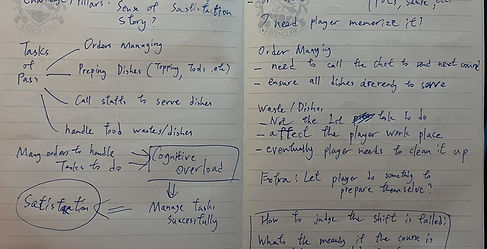 Sense of Satisfaction
Story?
Tasks
of
Pass
Orders Managing
Preping Dishes (Topping, Tools, etc)
Call staffs to serve dishes
handle food wastes/dishes
Many orders to handle
Tasks to do
Cognitive
Overload
Satisfaction
Manage tasks
Successfully
I need player memorize it?
Order Manging
- need to call the chef to send next course
- ensure all dishes already to serve
Waste/Dishes
- Not the 1st task to do
- affect the player work place
- eventually player needs to clean it up
Extra: Let player do something to
prepare themselve?
How to judge the shift is failed?
Whats the meaning if the course is